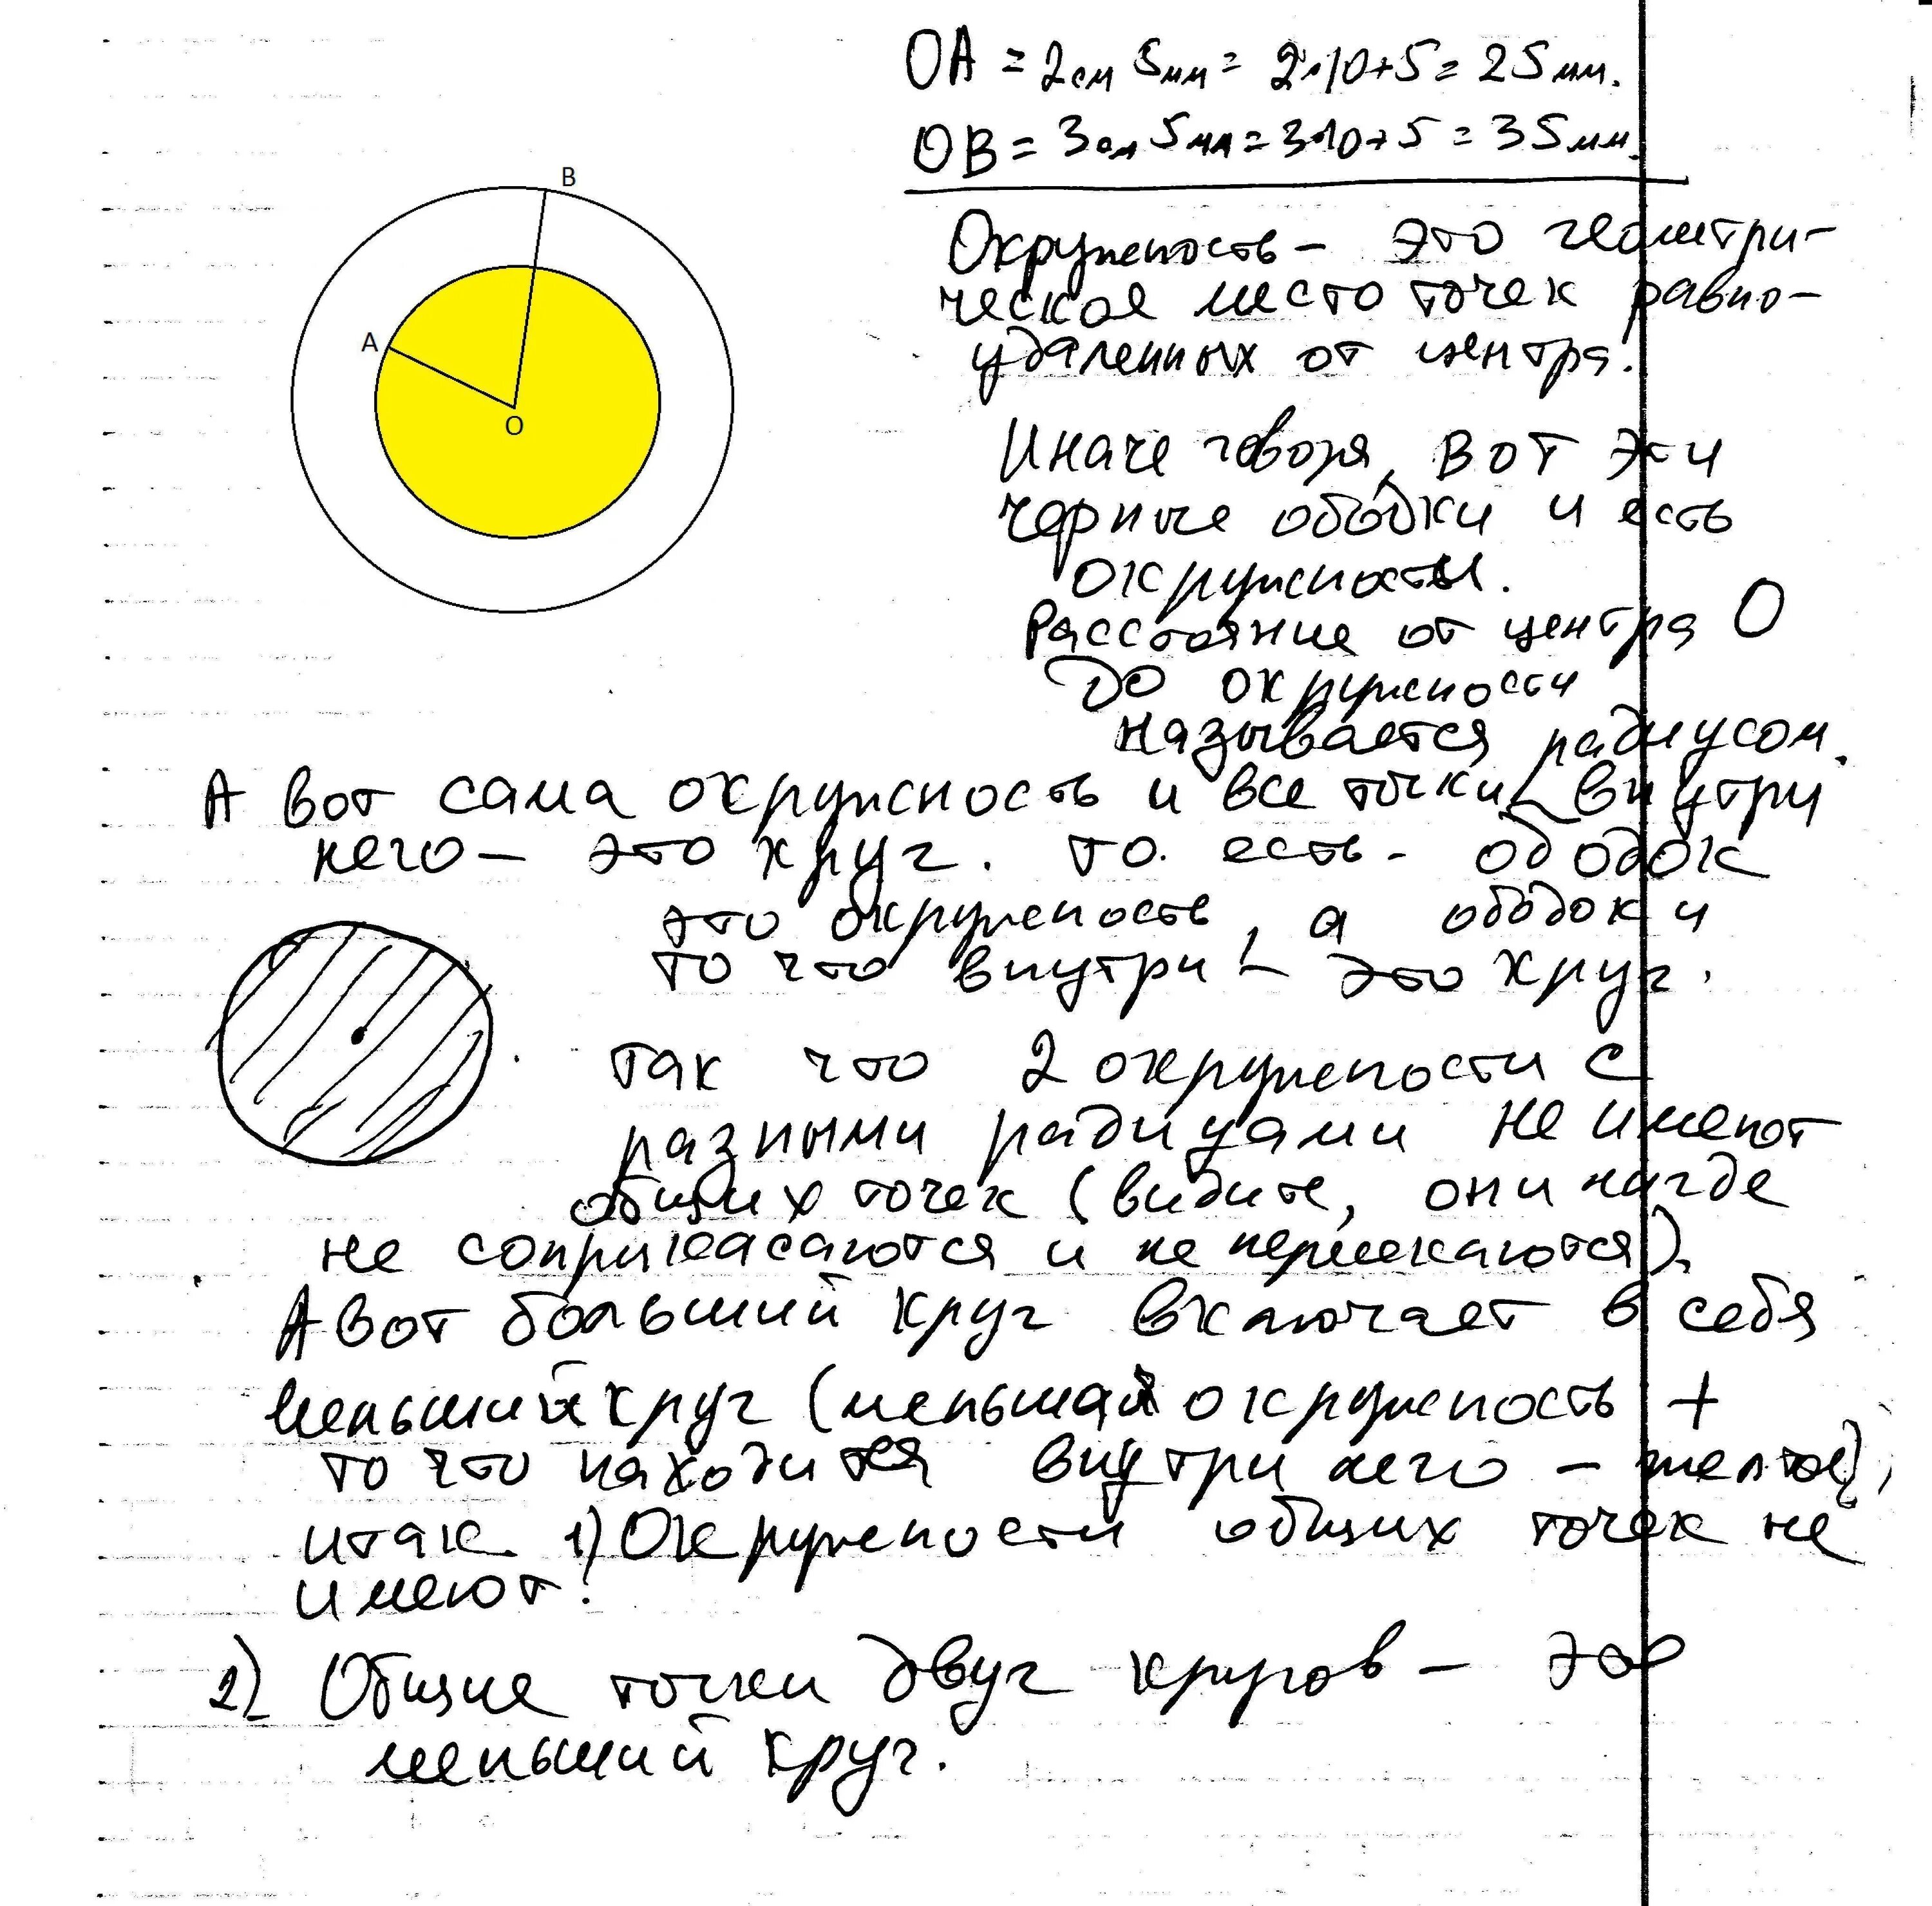 OA = 2см 5мм = 2·10+5 = 25мм.
OB = 3см 5мм = 3·10+5 = 35мм.
B
A
O
Окружность – это геометри-
ческое место точек равно-
удаленных от центра.
Иначе говоря, вот эти
черные ободки и есть
окружности.
Расстояние от центра O
до окружности
называется радиусом.
А вот сама окружность и все точки внутри
него – это круг. то. есть - ободок
это окружность, а ободок и
то что внутри – это круг.
так что 2 окружности с
разными радиусами не имеют
общих точек (видите, они нигде
не соприкасаются и не пересекаются).
А вот больший круг включает в себя
меньший круг (меньшая окружность +
то что находится внутри него – желтое),
итак 1) Окружности общих точек не
имеют!
2) Общие точки двуг кругов – это
меньший круг.